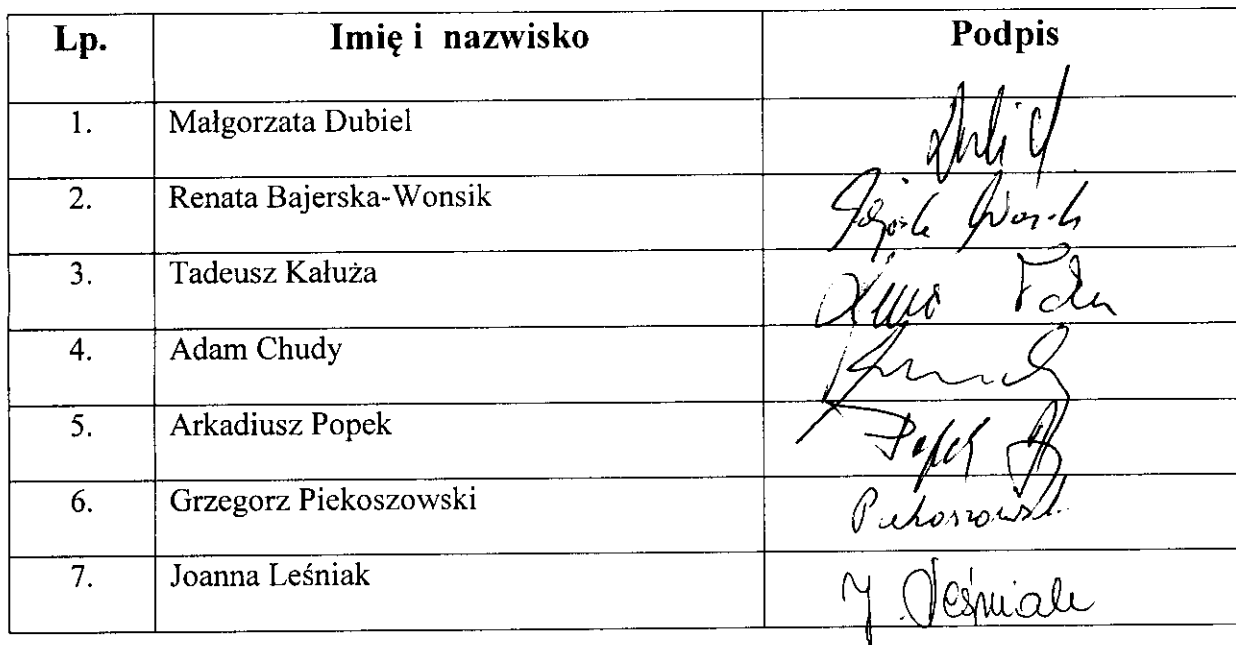 Lp. Imię i nazwisko Podpis
1. Małgorzata Dubiel
2. Renata Bajerska-Wonsik
3. Tadeusz Kałuża
4. Adam Chudy
5. Arkadiusz Popek Popek
6. Grzegorz Piekoszowski Piekoszowski
7. Joanna Leśniak J. Leśniak